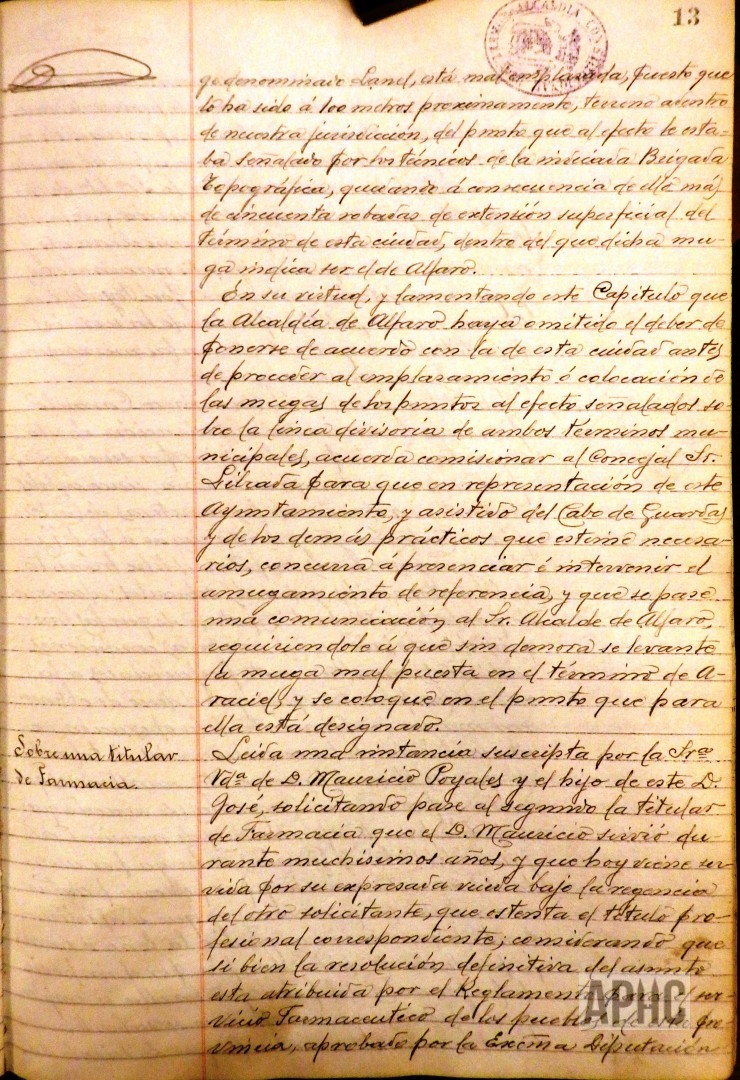 13
ge denominado Sand, está mal emplazada, puesto que
lo ha sido á 100 metros proximamente, terreno adentro
de nuestra jurisdicción, del punto que al efecto le esta-
ba señalado por los técnicos de la indicada Brigada
Topográfica, quedando á consecuencia de ello más
de cincuenta robadas de extensión superficial del
término de esta ciudad, dentro del que dicha mu-
ga indica ser el de Alfaro.
En su virtud, y lamentando este Capítulo que
la Alcaldía de Alfaro haya omitido el deber de
ponerse de acuerdo con la de esta ciudad antes
de proceder al emplazamiento ó colocación de
las mugas de los puntos al efecto señalados so-
bre la linea divisoria de ambos términos mu-
nicipales, acuerda comisionar al Concejal Sr.
para que en representación de este
Ayuntamiento, y asistido del Cabo de Guardas
y de los demás prácticos que estime necesa-
rios, concurra á presenciar é intervenir el
amugamiento de referencia, y que se pase
una comunicación al Sr. Alcalde de Alfaro,
requiriendole á que sin demora se levante
la muga mal puesta en el término de A-
raciel, y se coloque en el punto que para
ella está designado.
Sobre una titular
de Farmacia.
Leida una instancia suscripta por la Sra
Vda de D. Mauricio Poyales y el hijo de este D.
José, solicitando pase al segundo la titular
de Farmacia que el D. Mauricio sirvió du-
rante muchisimos años, y que hoy viene ser-
vida por su expresada viuda bajo la regencia
del otro solicitante, que ostenta el título pro-
fesional correspondiente; considerando que
si bien la resolución definitiva del asunto
esta atribuida por el Reglamento para el ser-
vicio Farmaceutico de los pueblos de esta pro-
vincia, aprobado por la Excma Diputación
APHC